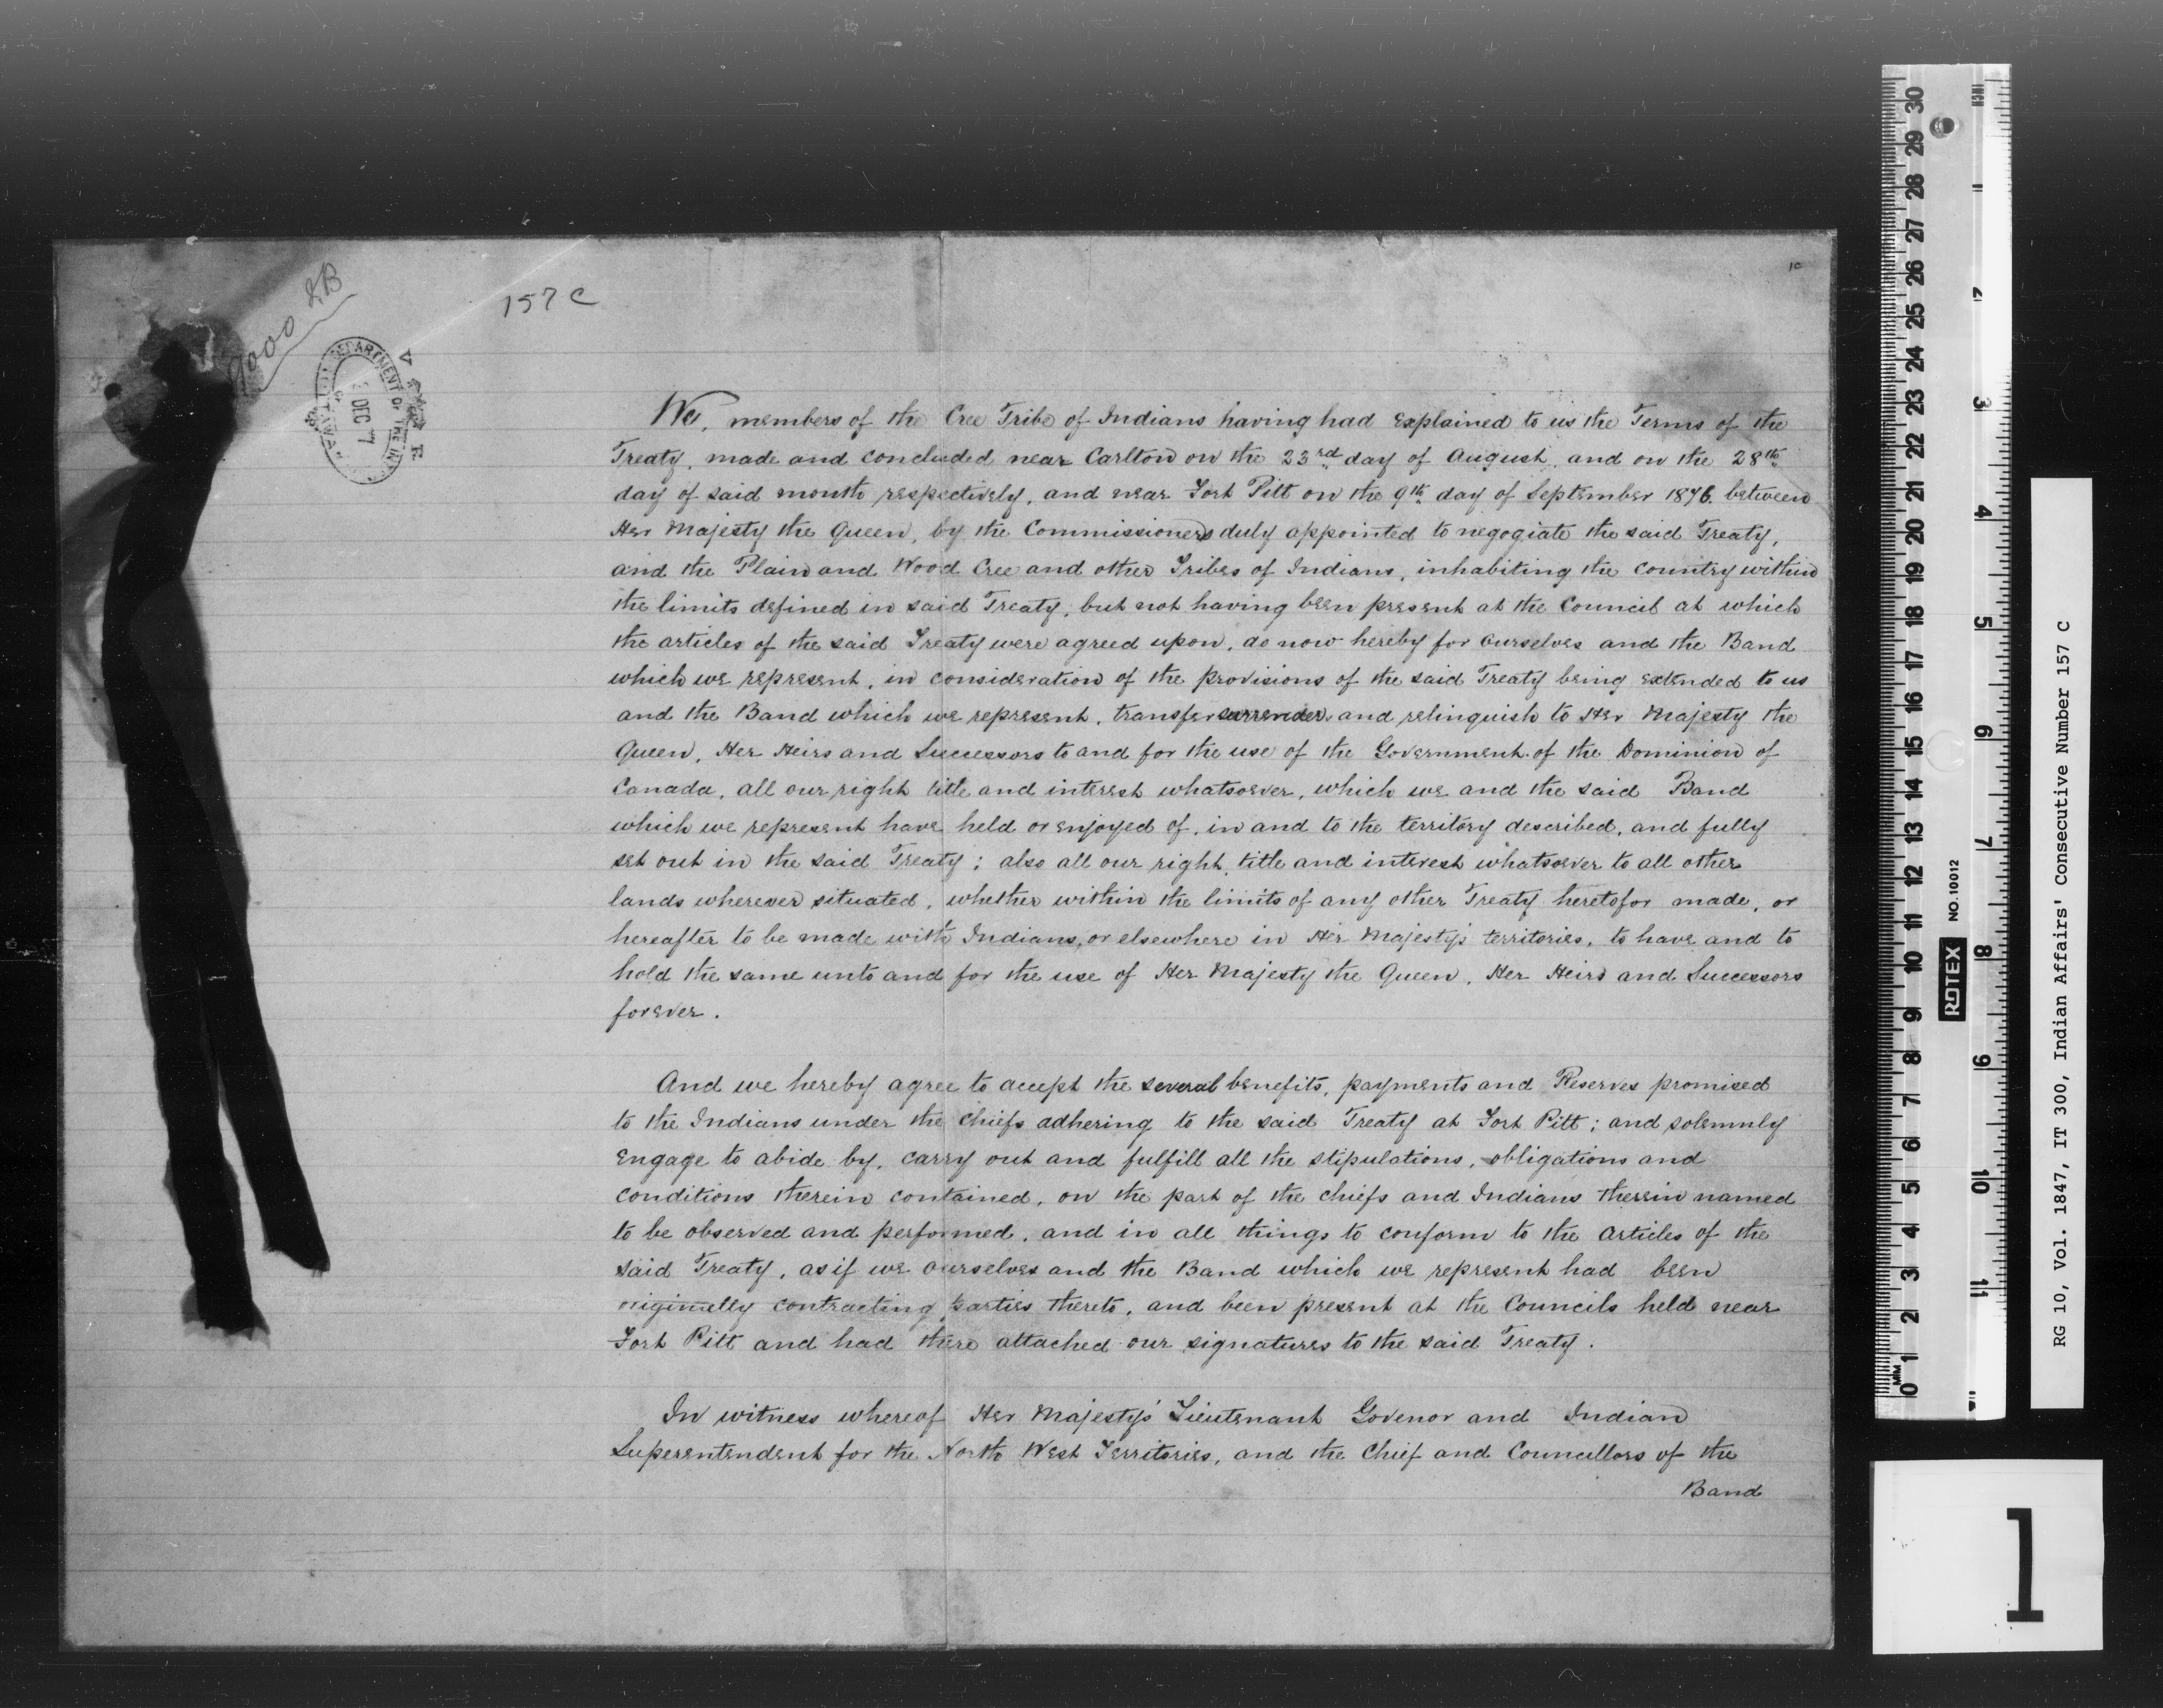 157 C
1C
9000 LB
DEPARTMENT OF THE IN
DEC 7
OTTAWA
We, members of the Cree Tribe of Indians having had explained to us the Terms of the
Treaty, made and concluded near Carlton on the 23rd day of August, and on the 28th
day of said month respectively, and near Fort Pitt on the 9th day of September 1876. between
Her Majesty the Queen, by the Commissioners duly appointed to negogiate the said Treaty,
and the Plain and Wood Cree and other Tribes of Indians, inhabiting the country within
the limits defined in said Treaty, but not having been present at the Council at which
the articles of the said Treaty were agreed upon, do now hereby for ourselves and the Band
which we represent, in consideration of the provisions of the said Treaty being extended to us
and the Band which we represent, transfer surrender, and relinquish to Her Majesty the
Queen, Her Heirs and Successors to and for the use of the Government of the Dominion of
Canada, all our right title and interest whatsoever, which we and the said Band
which we represent have held or enjoyed of, in and to the territory described, and fully
set out in the said Treaty; also all our right, title and interest whatsoever to all other
lands wherever situated, whether within the limits of any other Treaty heretofor made, or
hereafter to be made with Indians, or elsewhere in Her Majesty's territories, to have and to
hold the same unto and for the use of Her Majesty the Queen, Her Heirs and Successors
forever.
And we hereby agree to accept the several benefits, payments and Reserves promised
to the Indians under the Chiefs adhering to the said Treaty at Fort Pitt; and solemnly
engage to abide by, carry out and fulfill all the stipulations, obligations and
conditions therein contained, on the part of the chiefs and Indians therein named
to be observed and performed, and in all things to conform to the articles of the
said Treaty, as if we ourselves and the Band which we represent had been
originelly contracting parties thereto, and been present at the Councils held near
Fort Pitt and had there attached our signatures to the said Treaty.
In witness whereof Her Majesty's Lieutenant Govenor and Indian
Superentendent for the North West Territories, and the Chief and Councillors of the
Band
INCH
1
2
3
4
5
6
7
8
9
10
11
30 29 28 27 26 25 24 23 22 21 20 19 18 17 16 15 14 13 12 11 10 9 8 7 6 5 4 3 2 1 0
MM
ROTEX NO. 10012
RG 10, Vol. 1847, IT 300, Indian Affairs' Consecutive Number 157 C
1